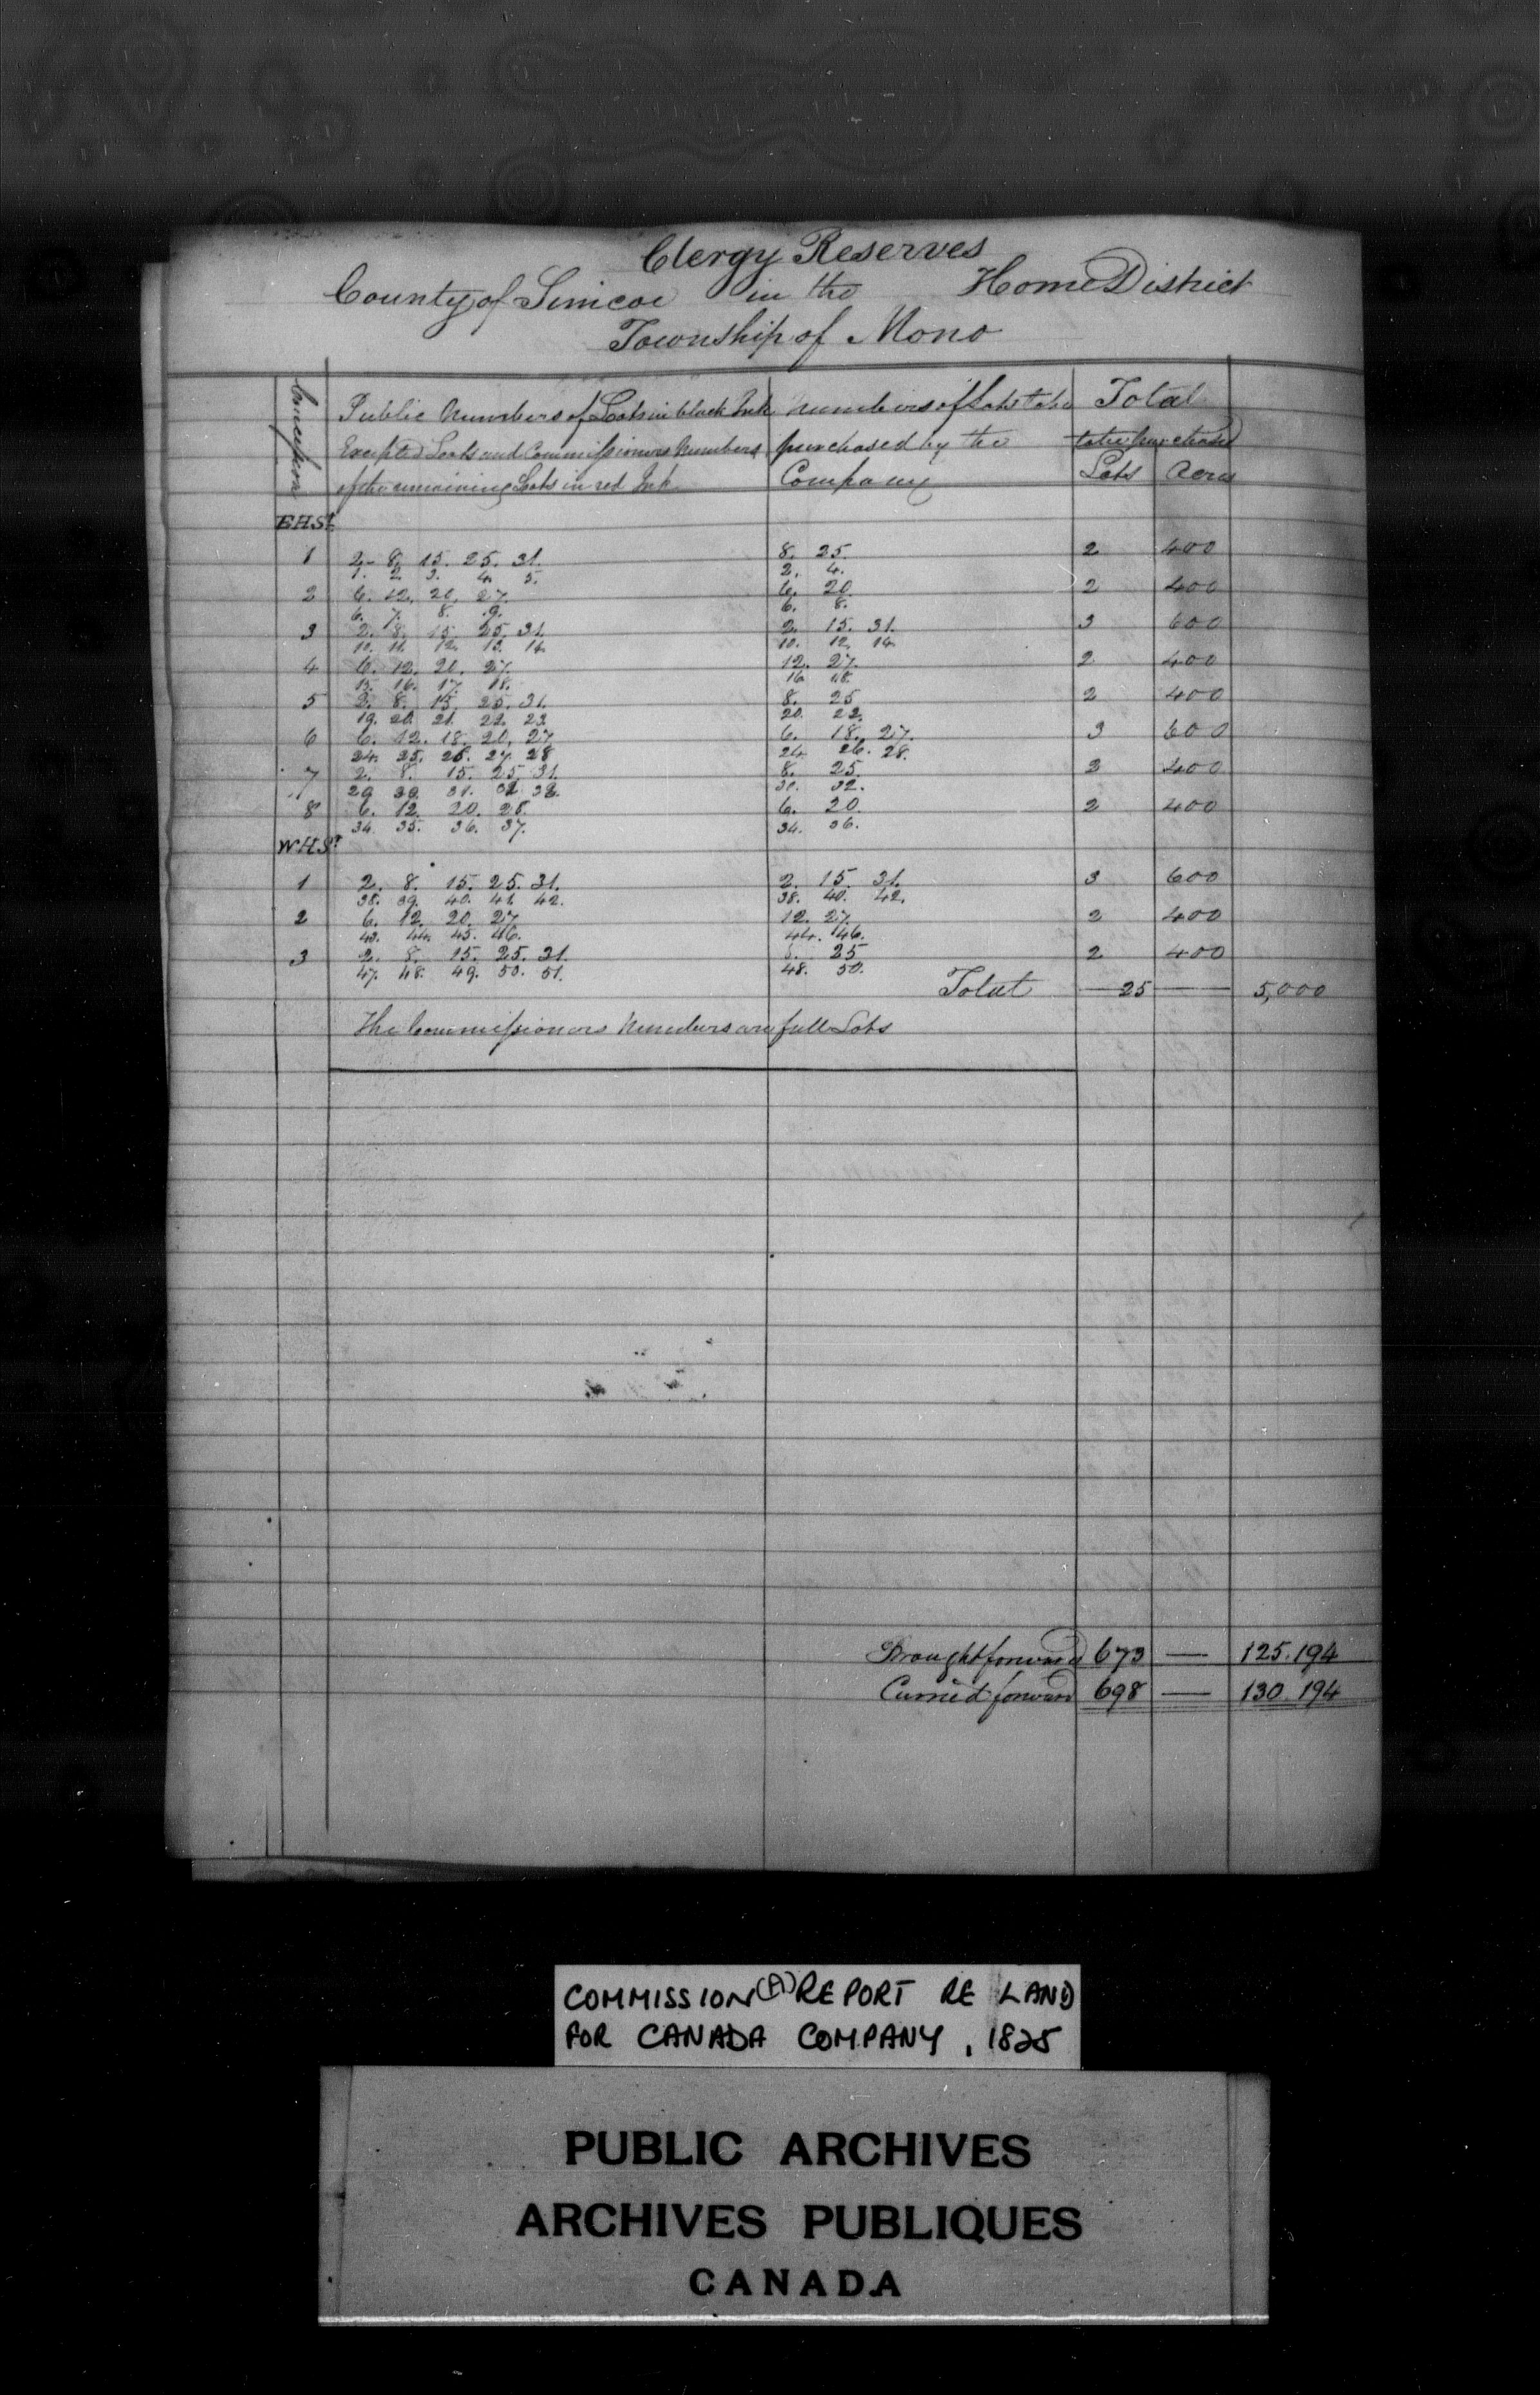 Clergy Reserves
County of Simcoe in the Home District
Township of Mono
Concession
Public Numbers of Lots in black Ink Numbers of Lots to be Total
Excepted Lots and Commissioners Numbers purchased by the to be purchased
of the remaining Lots in red Ink Company Lots Acres
E.H.St
1 2. 8. 15. 25. 31. 8. 25. 2 400
1. 2. 3. 4. 5. 2. 4.
2 6. 12. 20. 27. 6. 20. 2 400
6. 7. 8. 9. 6. 8.
3 2. 8. 15. 25. 31. 2. 15. 31. 3 600
10. 11. 12. 13. 14. 10. 12. 14.
4 6. 12. 20. 27. 12. 27. 2 400
15. 16. 17. 18. 16. 18.
5 2. 8. 15. 25. 31. 8. 25 2 400
19. 20. 21. 22. 23. 20. 22.
6 6. 12. 18. 20. 27 6. 18. 27. 3 600
24. 25. 26. 27. 28 24. 26. 28.
7 2. 8. 15. 25. 31. 8. 25. 2 400
29 30. 31. 32. 33. 30. 32.
8 6. 12. 20. 28. 6. 20. 2 400
34. 35. 36. 37. 34. 36.
W.H.St
1 2. 8. 15. 25. 31. 2. 15. 31. 3 600
38. 39. 40. 41. 42. 38. 40. 42.
2 6. 12. 20. 27. 12. 27. 2 400
43. 44. 45. 46. 44. 46.
3 2. 8. 15. 25. 31. 8. 25 2 400
47. 48. 49. 50. 51. 48. 50.
Total 25 5,000
The Commissioners Numbers are full Lots
Brought forward 673 — 125.194
Carried forward 698 — 130.194
COMMISSION (A) REPORT RE LAND
FOR CANADA COMPANY, 1825
PUBLIC ARCHIVES
ARCHIVES PUBLIQUES
CANADA